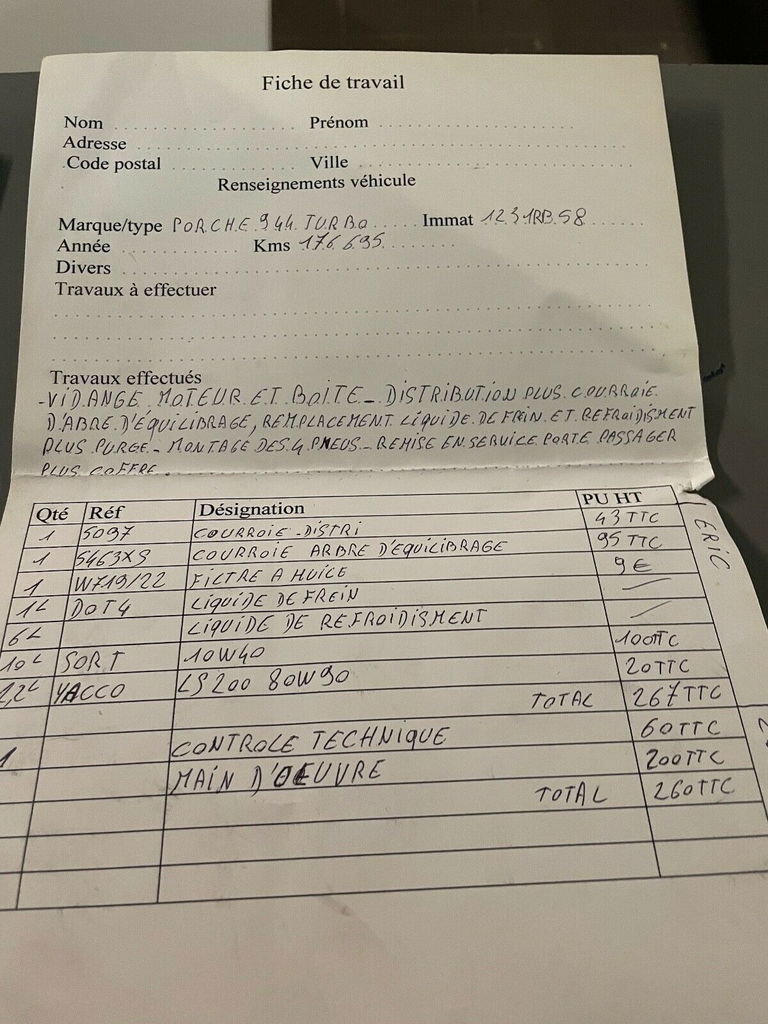 Fiche de travail
Nom Prénom
Adresse
Code postal Ville
Renseignements véhicule
Marque/type PORCHE 944 TURBO Immat 1231RB58
Année Kms 176695
Divers
Travaux à effectuer
Travaux effectués
-VIDANGE MOTEUR ET BOITE - DISTRIBUTION PLUS COURROIE
D'ABRE D'ÉQUILIBRAGE, REMPLACEMENT LIQUIDE DE FREIN ET REFROIDISMENT
PLUS PURGE - MONTAGE DES 4 PNEUS - REMISE EN SERVICE PORTE PASSAGER
PLUS COFFRE.
Qté Réf Désignation PU HT
1 5097 COURROIE DISTRI 43 TTC
1 5463XS COURROIE ARBRE D'EQUILIBRAGE 95 TTC
1 W719/22 FILTRE A HUILE 9€
1L DOT4 LIQUIDE DE FREIN
6L LIQUIDE DE REFROIDISMENT
10L SORT 10W40 100TTC
2,2L YACCO LS200 80W90 20TTC
TOTAL 267TTC
1 CONTROLE TECHNIQUE 60TTC
MAIN D'OEUVRE 200TTC
TOTAL 260TTC
ERIC